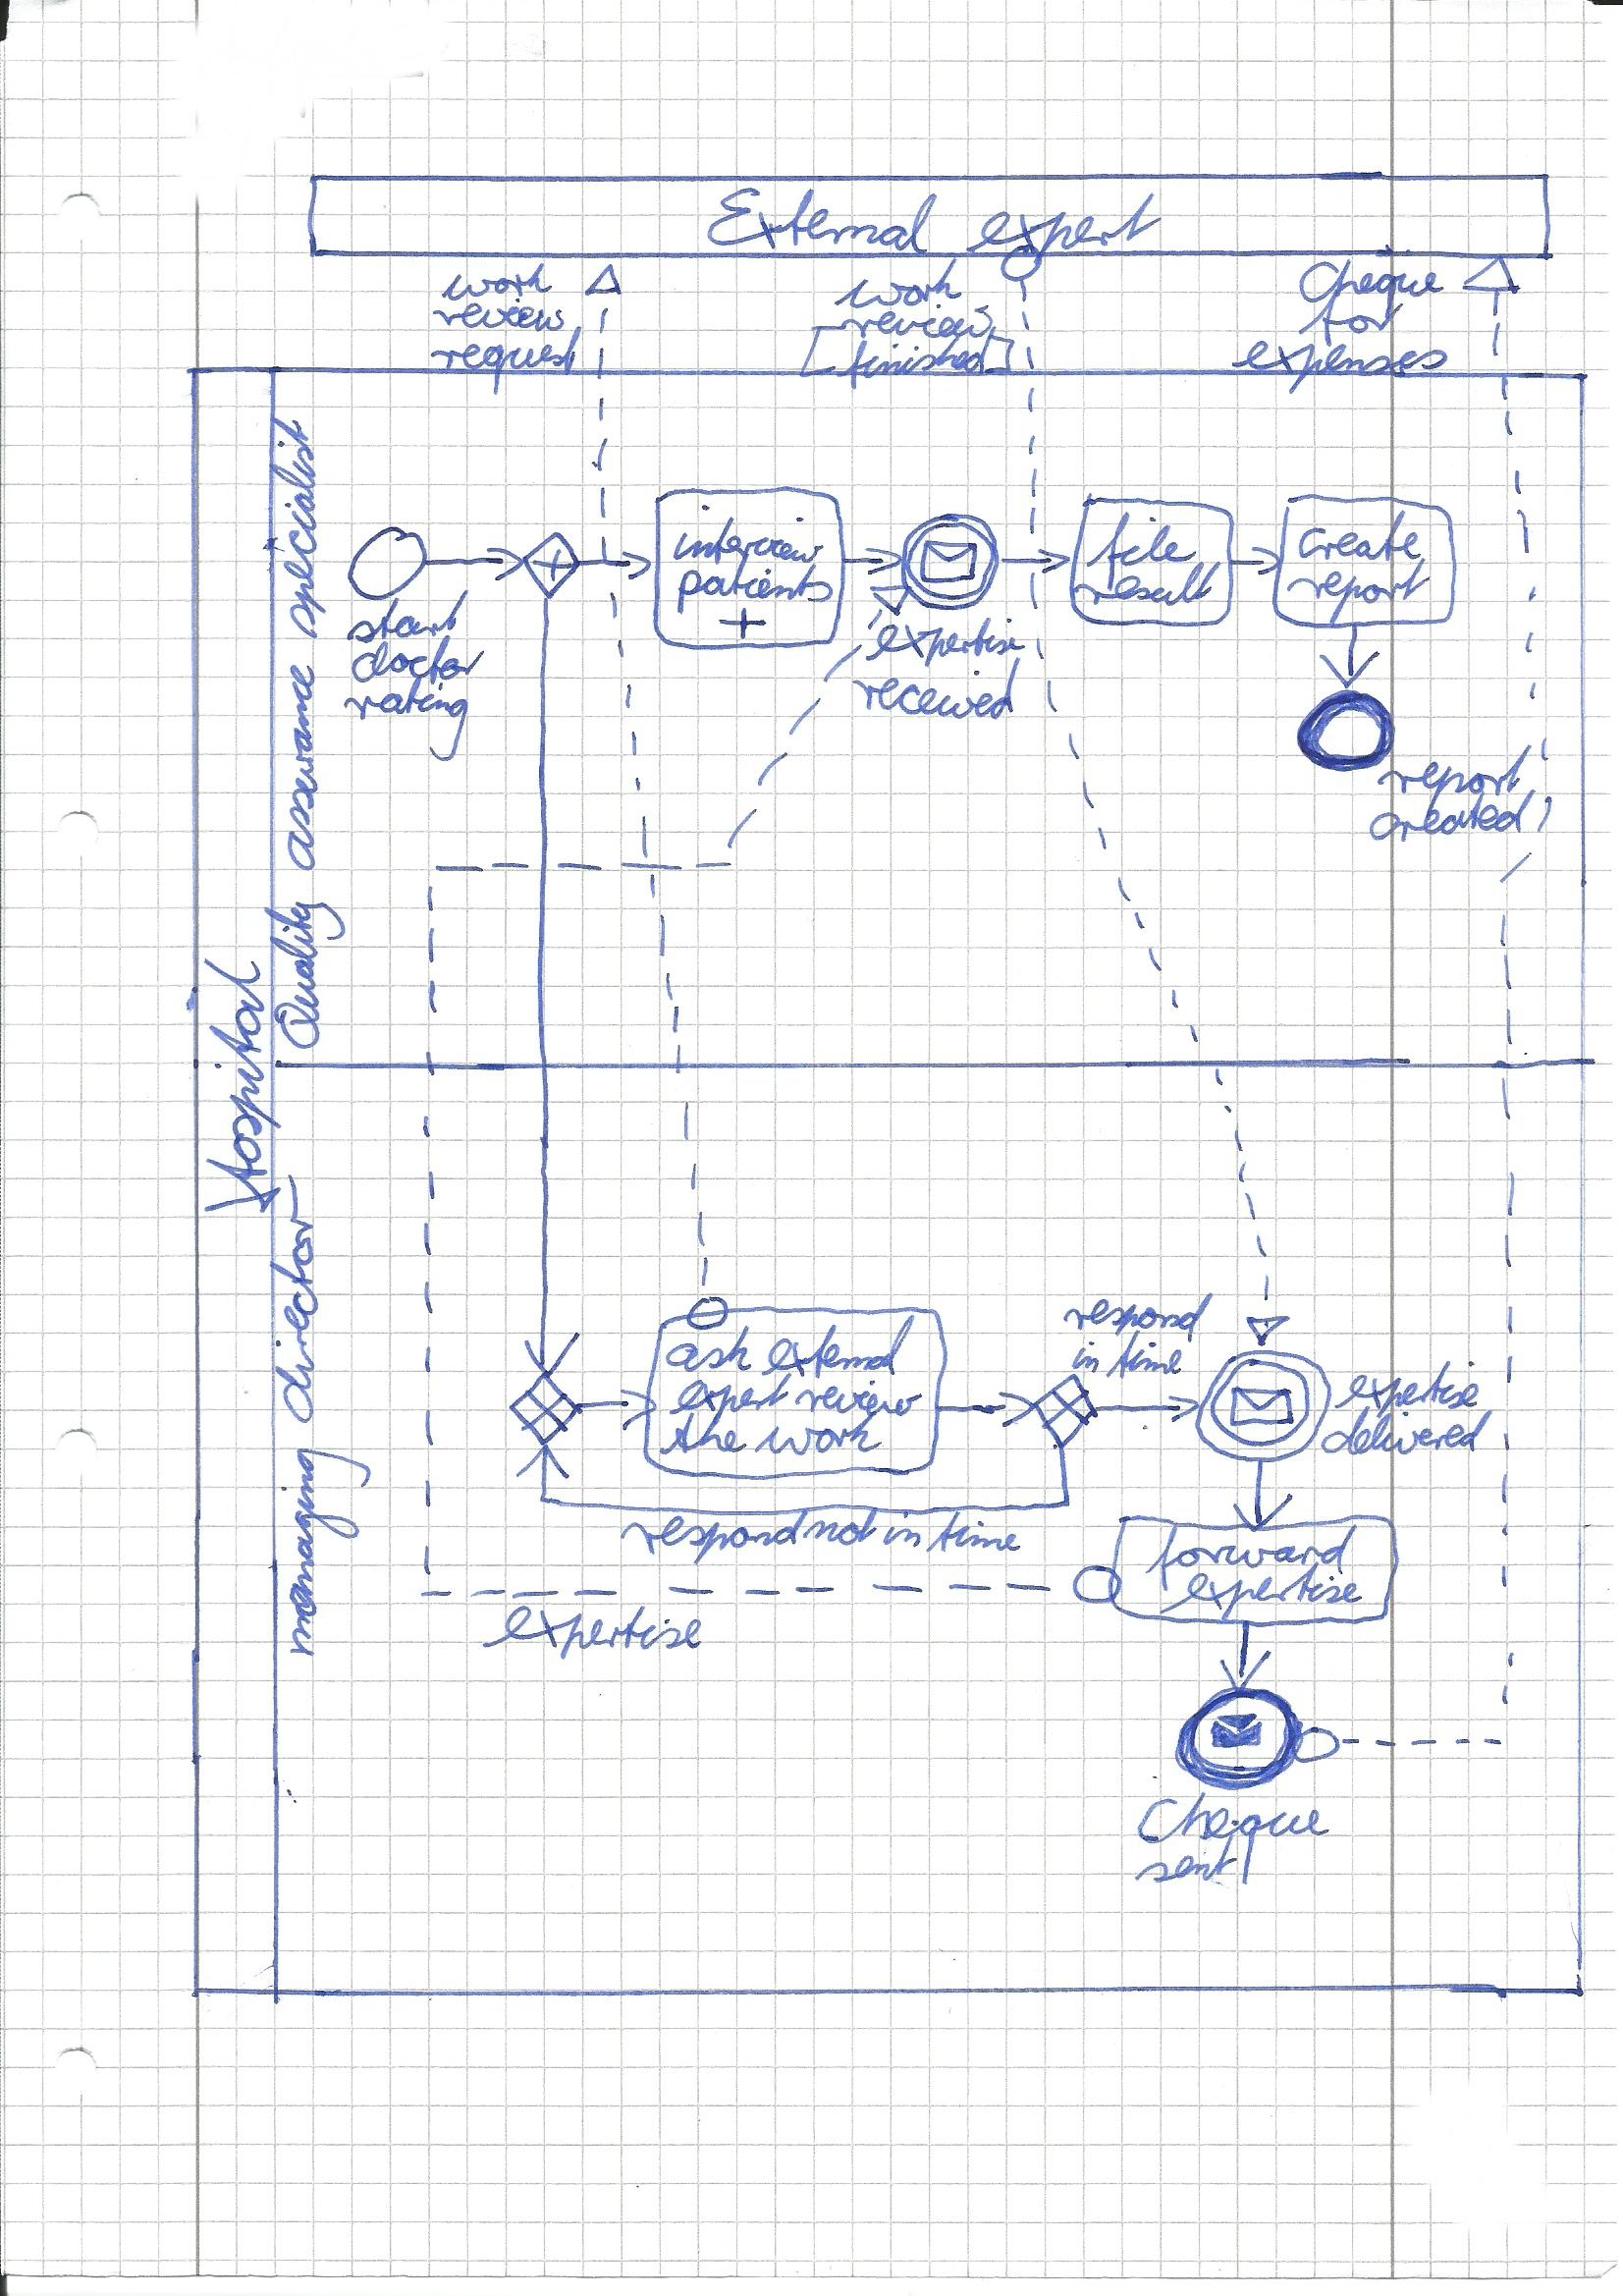 External expert
work
review
request
work
review
finished
Cheque
for
expenses
Hospital
Quality assurance specialist
start
doctor
rating
interview
patients
expertise
received
file
result
create
report
report
created
managing director
ask external
expert review
the work
respond
in time
respond not in time
expertise
delivered
forward
expertise
expertise
Cheque
sent